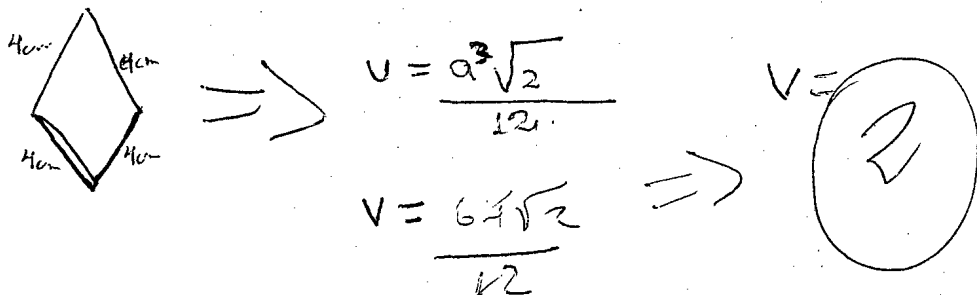 4cm 4cm
4cm 4cm
⇒
V = a³√2
12
V = 64√2
12
⇒
V = ?